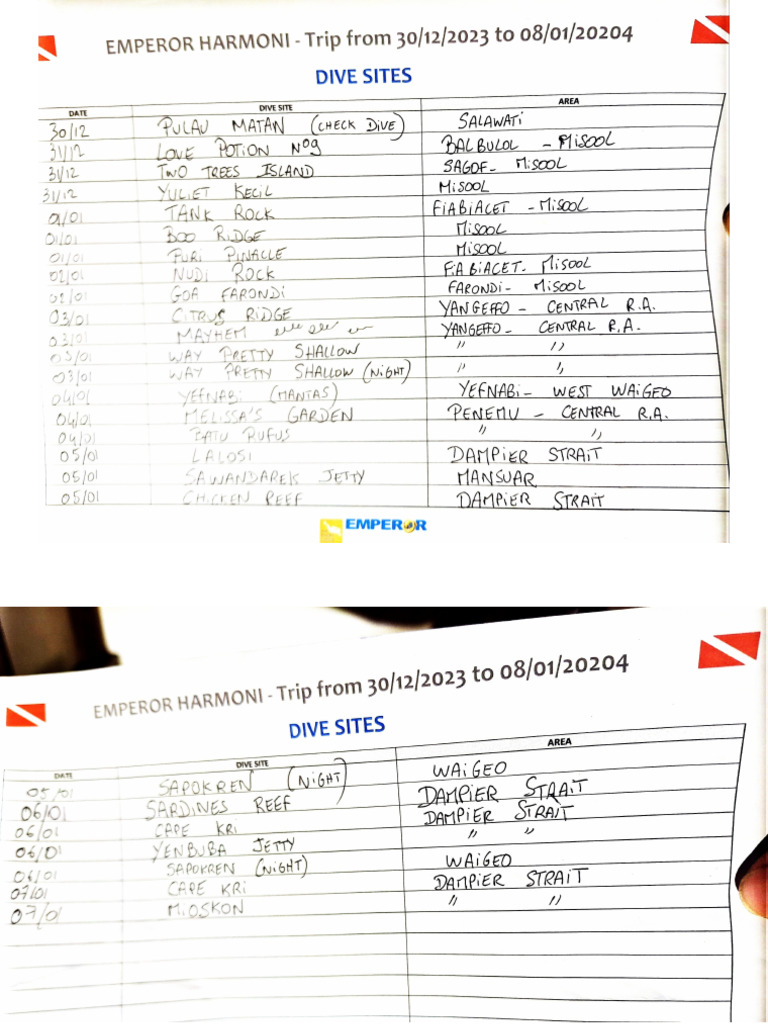 EMPEROR HARMONI - Trip from 30/12/2023 to 08/01/20204
DIVE SITES
DATE DIVE SITE AREA
30/12 PULAU MATAN (CHECK DIVE) SALAWATI
31/12 LOVE POTION Nº9 BALBULOL - MISOOL
31/12 TWO TREES ISLAND SAGOF - MISOOL
31/12 YULIET KECIL MISOOL
01/01 TANK ROCK FIABIACET - MISOOL
01/01 BOO RIDGE MISOOL
01/01 FURI PINACLE MISOOL
02/01 NUDI ROCK FIABIACET - MISOOL
02/01 GOA FARONDI FARONDI - MISOOL
03/01 CITRUS RIDGE YANGEFFO - CENTRAL R.A.
03/01 MAYHEM YANGEFFO - CENTRAL R.A.
03/01 WAY PRETTY SHALLOW " "
03/01 WAY PRETTY SHALLOW (NIGHT) " "
04/01 YEFNABI (MANTAS) YEFNABI - WEST WAIGEO
04/01 MELISSA'S GARDEN PENEMU - CENTRAL R.A.
04/01 BATU RUFUS " "
05/01 LALOSI DAMPIER STRAIT
05/01 SAWANDAREK JETTY MANSUAR
05/01 CHICKEN REEF DAMPIER STRAIT
EMPEROR
EMPEROR HARMONI - Trip from 30/12/2023 to 08/01/20204
DIVE SITES
DATE DIVE SITE AREA
05/01 SAPOKREN (NIGHT) WAIGEO
06/01 SARDINES REEF DAMPIER STRAIT
06/01 CAPE KRI DAMPIER STRAIT
06/01 YENBUBA JETTY " "
06/01 SAPOKREN (NIGHT) WAIGEO
07/01 CAPE KRI DAMPIER STRAIT
07/01 MIOSKON " "